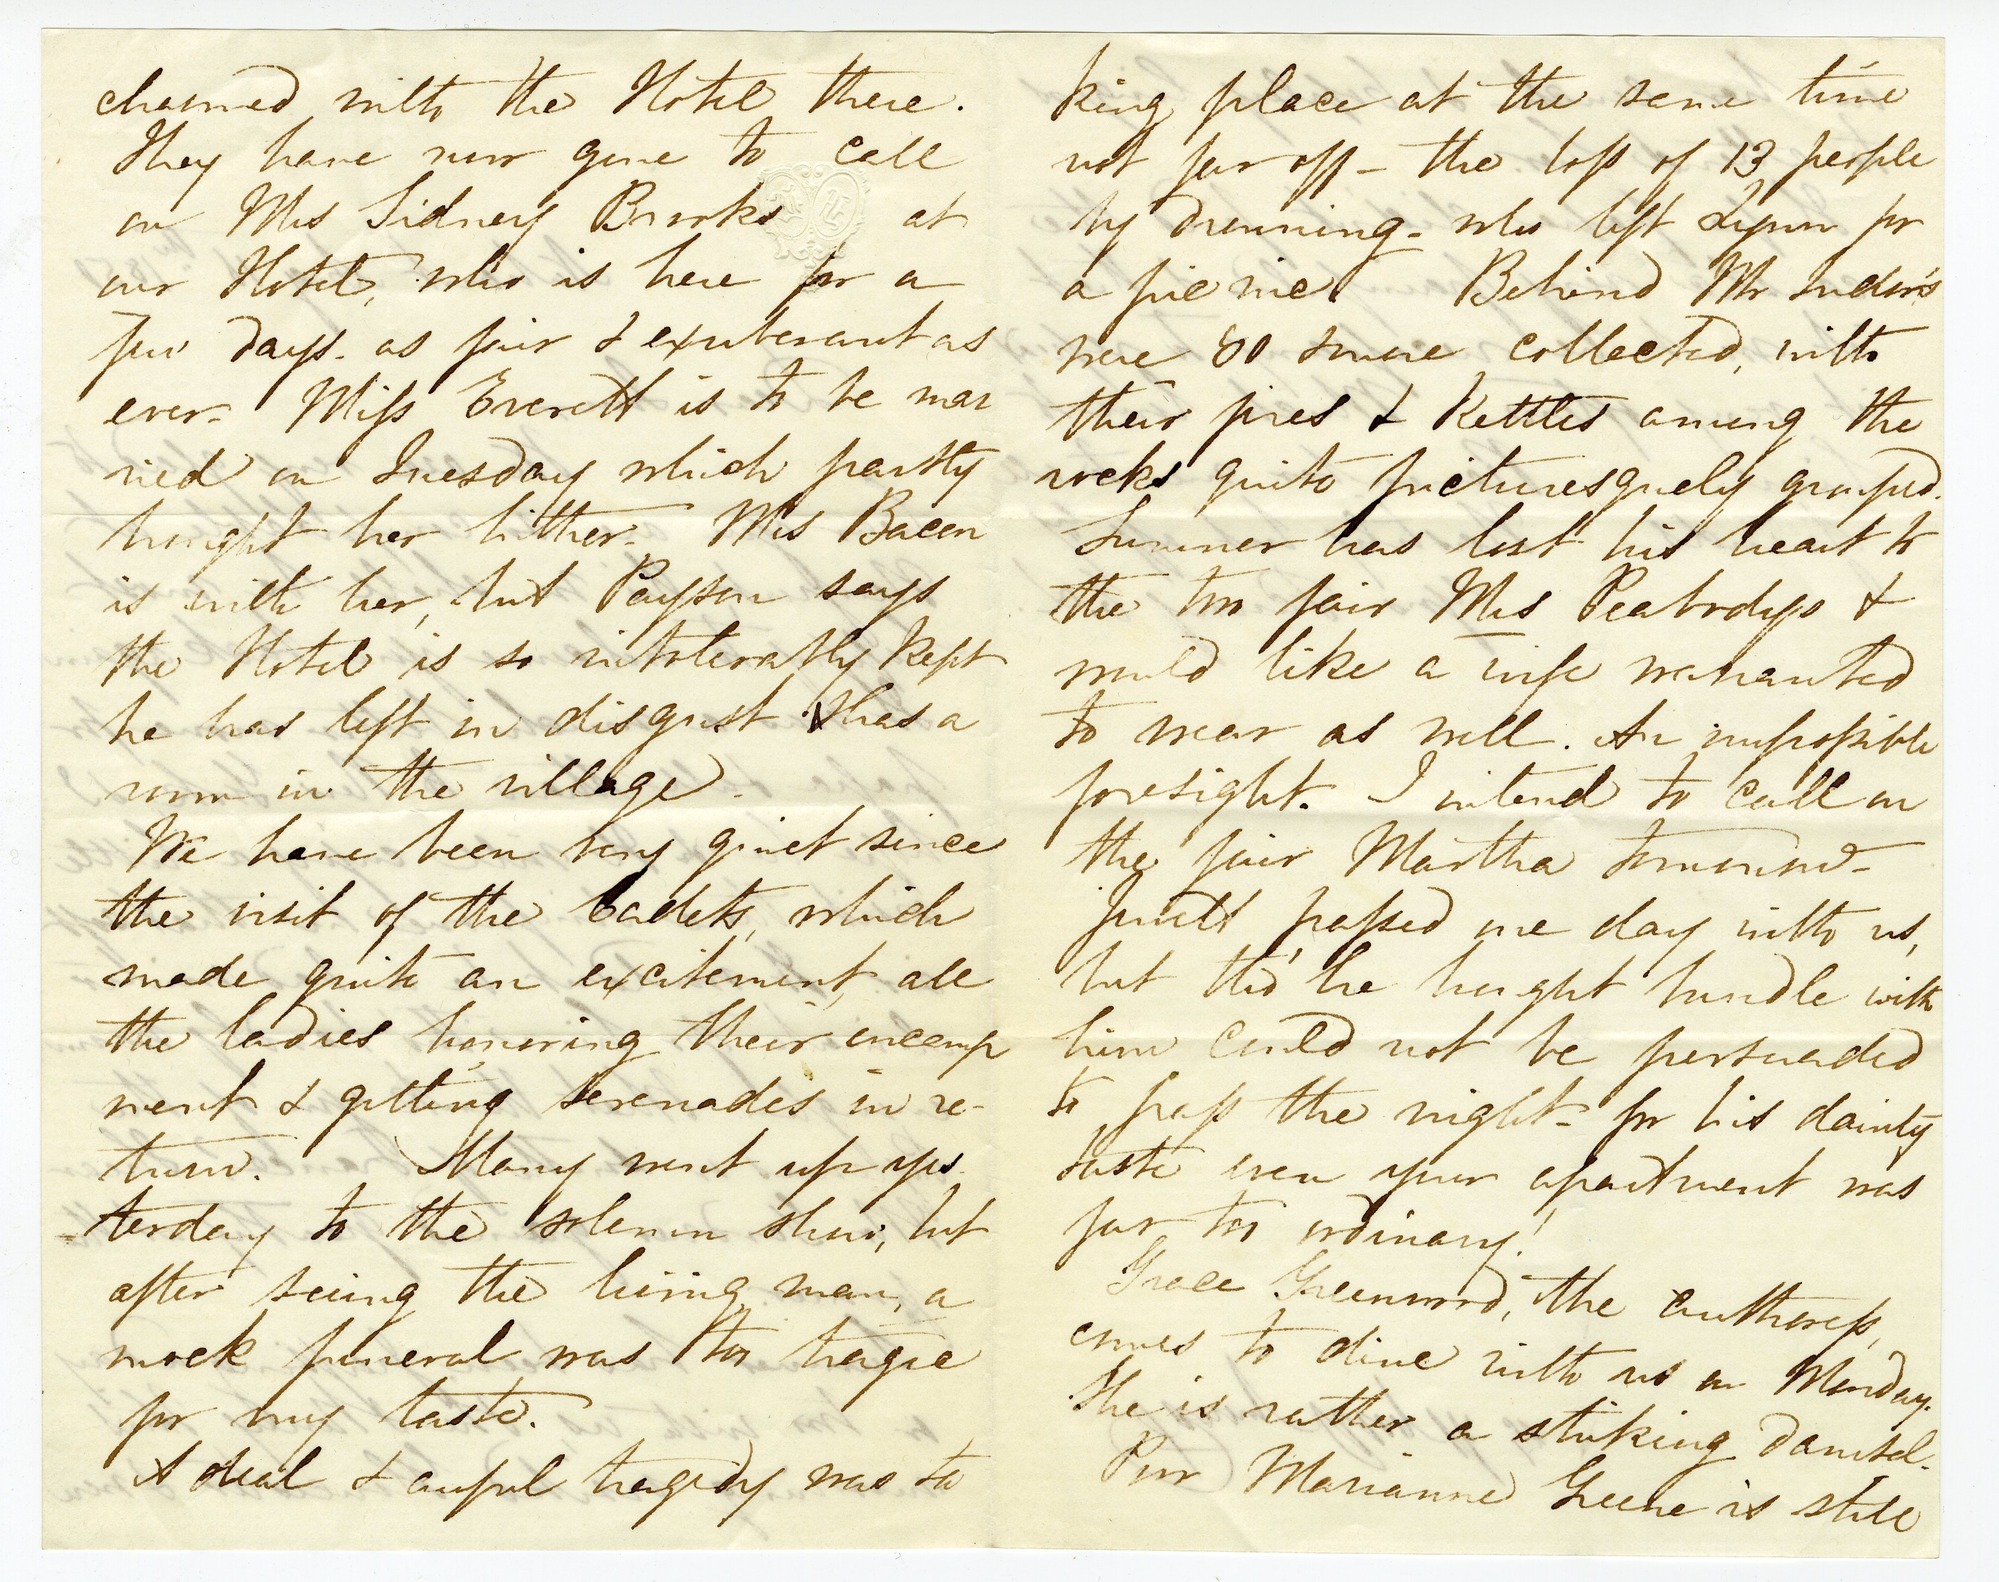 charmed with the Hotel there.
They have now gone to call
on Mrs Sidney Brooks at
our Hotel, who is here for a
few days - as fair & exuberant as
ever - Miss Everett is to be mar
ried on Tuesday which partly
brought her hither - Mrs Bacon
is with her, but Payson says
the Hotel is so intolerably kept
he has left in disgust & has a
room in the village -
We have been very quiet since
the visit of the Cadets, which
made quite an excitement, all
the ladies honoring their encamp
ment & getting serenades in re-
turn. Many went up yes
terday to the solemn show, but
after seeing the living man, a
mock funeral was too tragic
for my taste.
A real & awful tragedy was ta
king place at the same time
not far off - the loss of 13 people
by drowning - who left Lynn for
a pic nic! Behind Mr Tudor's
were 80 more collected, with
their fires & Kettles among the
rocks quite picturesquely grouped.
Sumner has lost his heart to
the two fair Mrs Peabodys &
would like a wife warranted
to wear as well. An impossible
foresight. I intend to call on
the fair Martha tomorrow -
passed one day with us,
but tho' he brought bundle with
him could not be persuaded
to pass the night - for his dainty
taste even your apartment was
far too ordinary!
Grace Greenwood, the authoress,
comes to dine with us on Monday.
She is rather a striking damsel.
Poor Marianne Greene is still